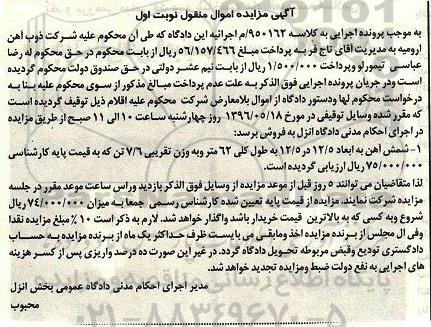 آگهی مزایده اموال منقول نوبت اول
به موجب پرونده اجرایی به کلاسه ۹۵۰۱۶۲/م اجرائیه این دادگاه که طی آن محکوم علیه شرکت ذوب آهن
ارومیه به مدیریت آقای تاج فر به پرداخت مبلغ ۵۶/۱۵۷/۴۶۶ ریال از بابت محکوم در حق محکوم له رضا
عباسی تیمورلو وپرداخت ۱/۵۰۰/۰۰۰ ریال از بابت نیم عشر دولتی در حق صندوق دولت محکوم گردیده
است ودر جریان پرونده اجرایی فوق الذکر به علت عدم پرداخت مبالغ مذکور از سوی محکوم علیه بنا به
درخواست محکوم لها ودستور دادگاه از اموال بلامعارض شرکت محکوم علیه اقلام ذیل توقیف گردیده است
که مقرر شده وسایل توقیفی در مورخ ۱۳۹۶/۰۵/۱۸ روز چهارشنبه ساعت ۱۰ الی ۱۱ صبح از طریق مزایده
در اجرای احکام مدنی دادگاه انزل به فروش برسد:
۱- شمش آهن به ابعاد ۱۲/۵ در ۱۲/۵ به طول کلی ۶۲ متر وبه وزن تقریبی ۷/۶ تن که به قیمت پایه کارشناسی
۷۵/۰۰۰/۰۰۰ ریال ارزیابی گردیده است.
لذا متقاضیان می توانند ۵ روز قبل از موعد مزایده از وسایل فوق الذکر بازدید وراس ساعت موعد مقرر در جلسه
مزایده شرکت نمایند. مزایده از قیمت پایه تعیین شده کارشناس رسمی جمعا به میزان ۷۴/۰۰۰/۰۰۰ ریال
شروع وبه کسی که به بالاترین قیمت خریدار باشد واگذار خواهد شد. لازم به ذکر است ۱۰٪ مبلغ مزایده نقدا
وفی ال مجلس از برنده مزایده اخذ ومابقی می بایست ظرف حداکثر یک ماه از برنده مزایده به حساب
دادگستری تودیع وقبض مربوطه تحویل دادگاه گردد. در غیر این صورت ده درصد واریزی پس از کسر هزینه
های اجرایی به نفع دولت ضبط ومزایده تجدید خواهد شد.
مدیر اجرای احکام مدنی دادگاه عمومی بخش انزل
محبوب
۰۲۱-۸۸۳۴۹۶۷۰